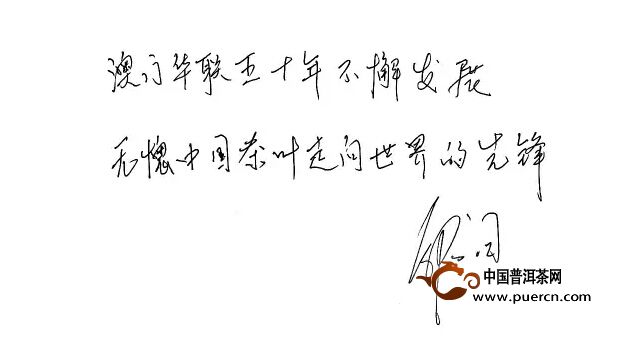 澳门华联五十年不懈发展
无愧中国茶叶走向世界的先锋
中国普洱茶网
www.puercn.com